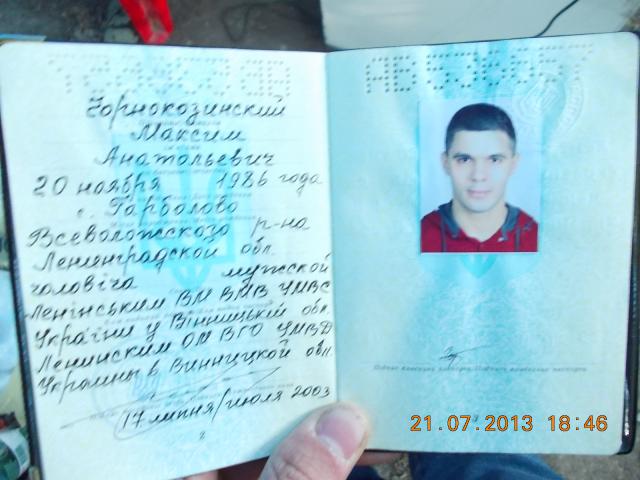 Чорнокозинский
Максим
Анатольевич
20 ноября 1986 года
с. Гарболово
Всеволожского р-на
Ленинградской обл.
чоловіча мужской
Ленінським ВМ ВМВ УМВС
України у Вінницькій обл.
Ленинским ОМ ВГО УМВД
Украины в Винницкой обл.
17 липня/июля 2003
2
21.07.2013 18:46